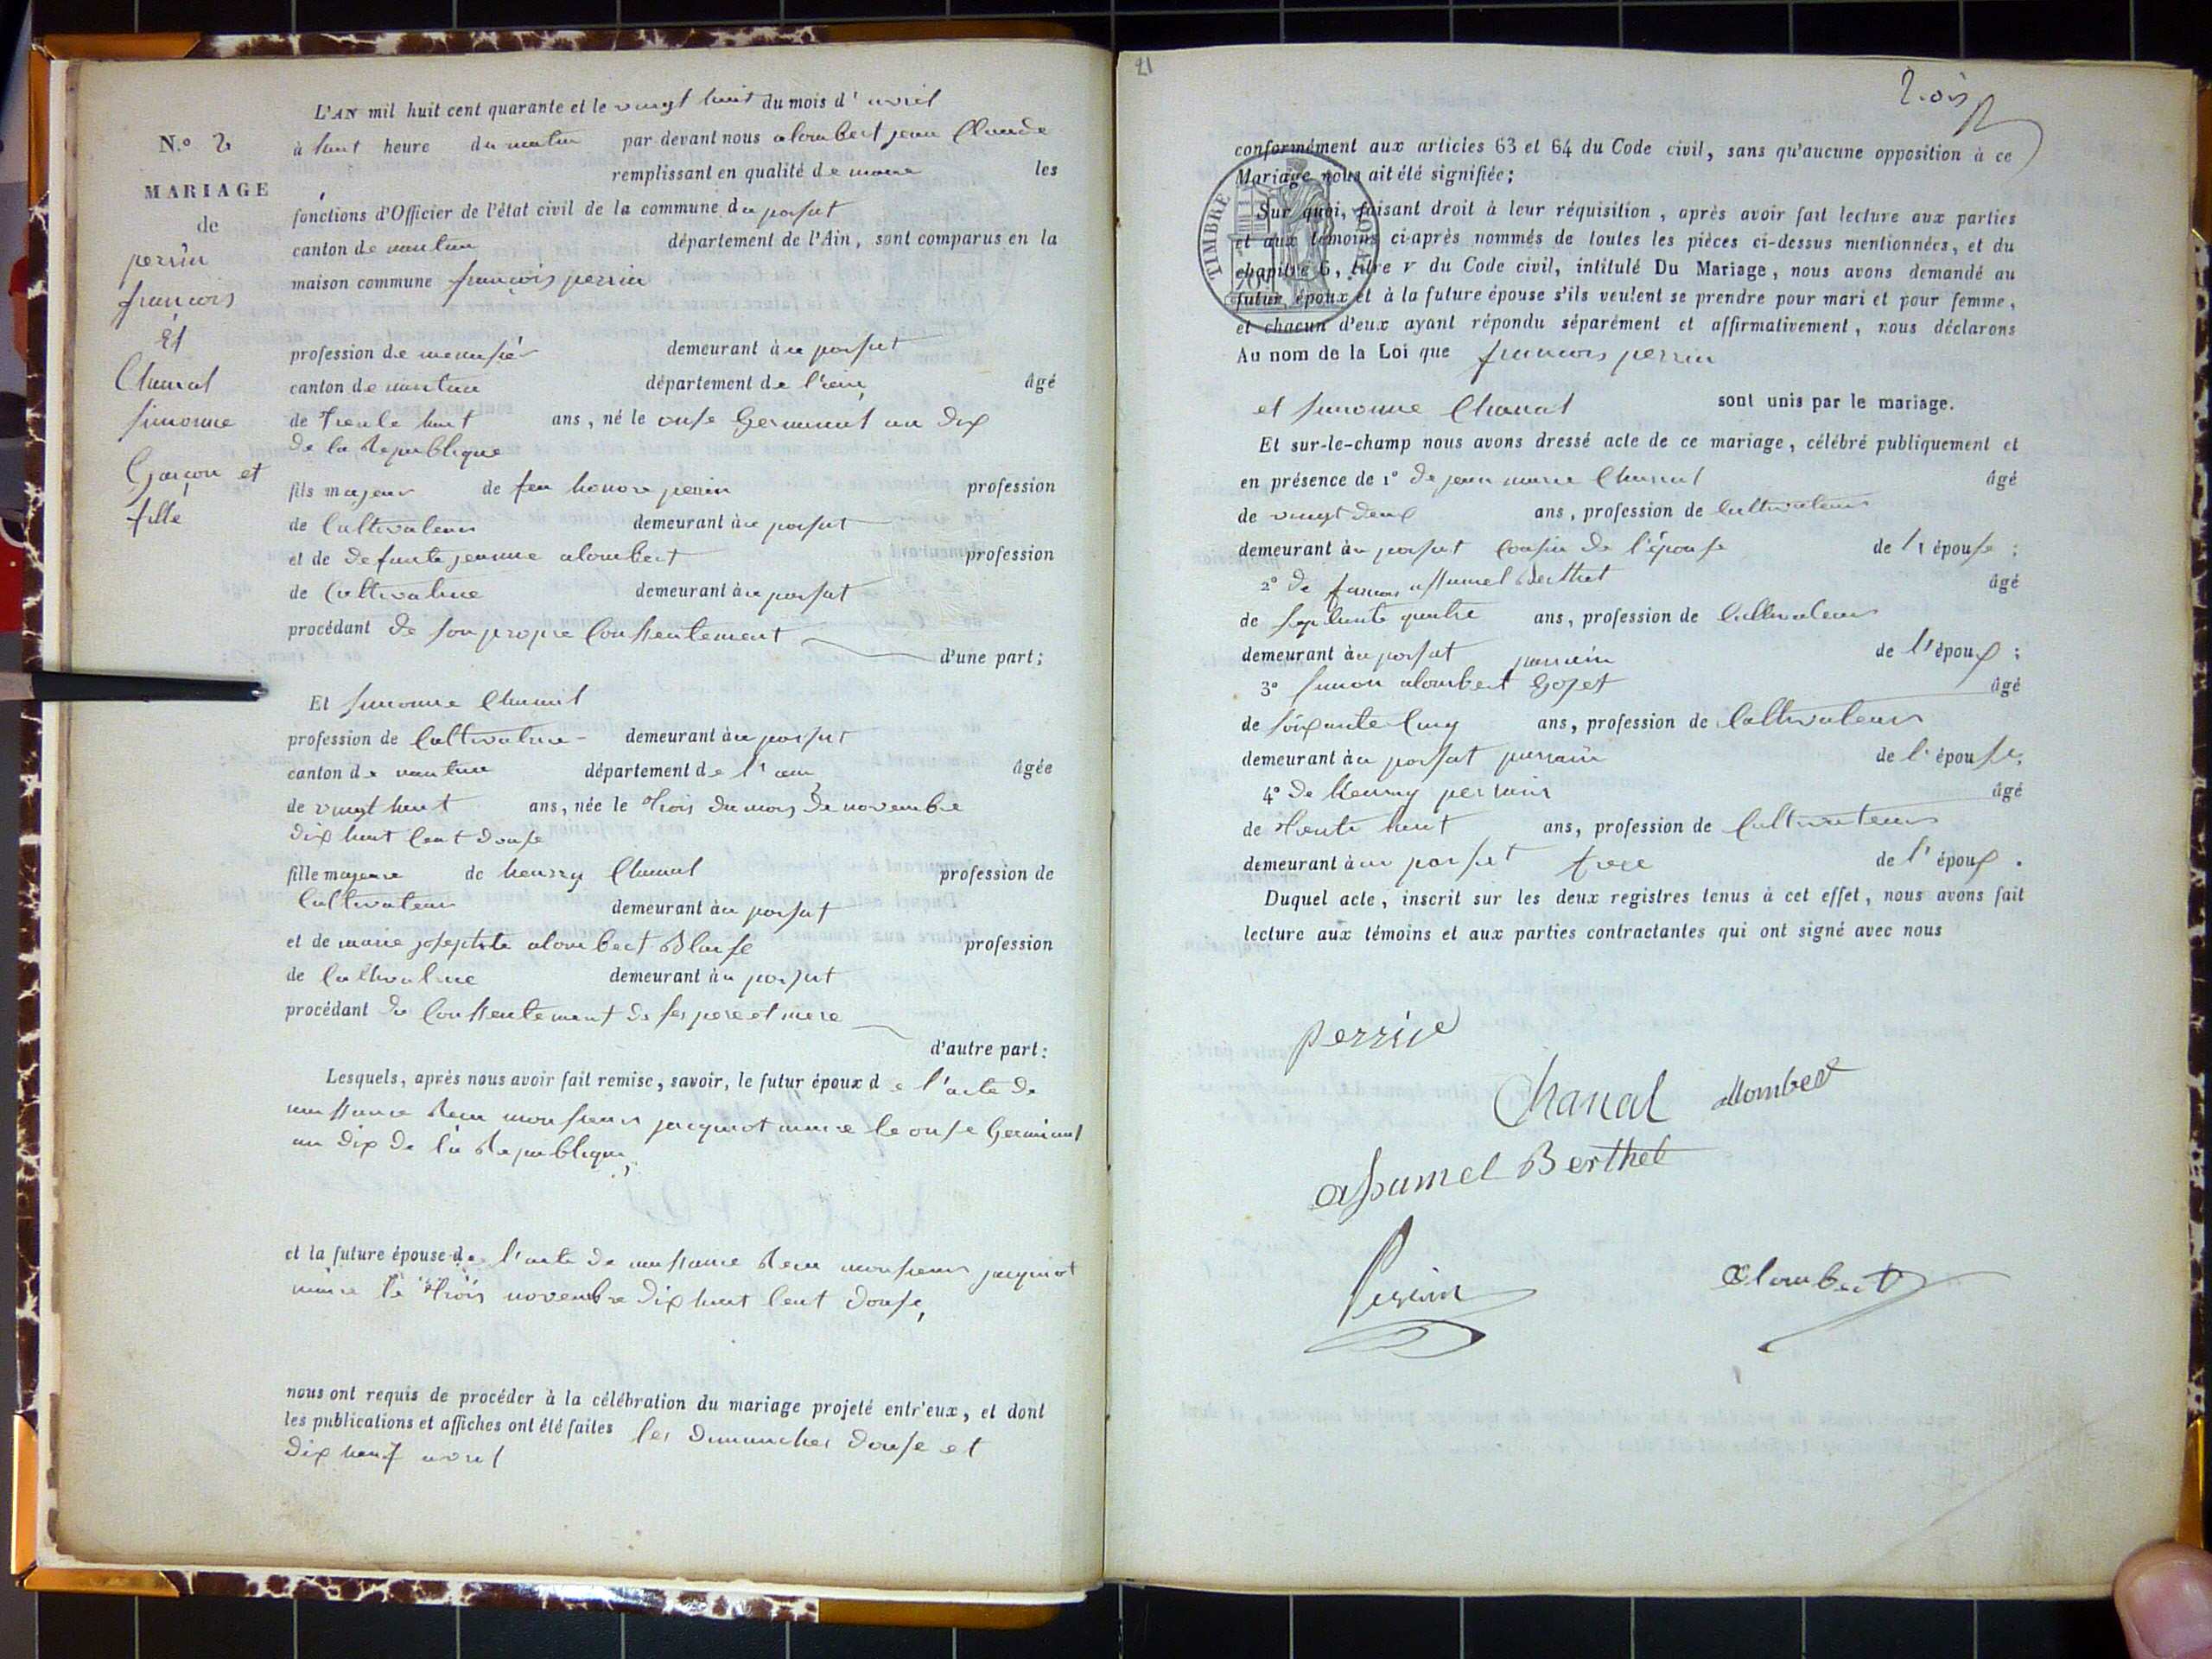 L'AN mil huit cent quarante et le vingt huit du mois d'avril
N.º 2
à huit heure du matin par devant nous alombert jean Claude
remplissant en qualité de maire les
MARIAGE
fonctions d'Officier de l'état civil de la commune du poisat
de
canton de nantua département de l'Ain, sont comparus en la
perrin
maison commune françois perrin
francois
Et
profession de menusier demeurant au poisat
Chanal
canton de nantua département de l'ain, âgé
simonne
de trente huit ans, né le onse Germinal an dix
de la Republique
Garcon et
fils majeur de feu honore perrin profession
fille
de Cultivateur demeurant au poisat
et de defunte jeanne alombert profession
de Cultivatrice demeurant au poisat
procédant de son propre Consentement
d'une part;
Et simonne Chanal
profession de Cultivatrice demeurant au poisat
canton de nantua département de l'ain âgée
de vingt huit ans, née le trois du mois de novembre
dix huit Cent douse
fille majeure de henry Chanal profession de
Cultivateur demeurant au poisat
et de marie josephte alombert Blaise profession
de Cultivatrice demeurant au poisat
procédant du Consentement de ses pere et mere
d'autre part:
Lesquels, après nous avoir fait remise, savoir, le futur époux de l'acte de
naissance Reçu monsieur jacquiot maire le onse Germinal
an dix de la Republique,
et la future épouse de l'acte de naissance Reçu monsieur jacquiot
maire le trois novembre dix huit Cent douse,
nous ont requis de procéder à la célébration du mariage projeté entr'eux, et dont
les publications et affiches ont été faites les dimanches douse et
dix neuf avril
21
trois
conformément aux articles 63 et 64 du Code civil, sans qu'aucune opposition à ce
Mariage nous ait été signifiée;
TIMBRE ROYAL
Sur quoi, faisant droit à leur réquisition, après avoir fait lecture aux parties
et aux témoins ci-après nommés de toutes les pièces ci-dessus mentionnées, et du
chapitre 6, titre v du Code civil, intitulé Du Mariage, nous avons demandé au
futur époux et à la future épouse s'ils veulent se prendre pour mari et pour femme,
et chacun d'eux ayant répondu séparément et affirmativement, nous déclarons
Au nom de la Loi que francois perrin
et simonne Chanal sont unis par le mariage.
Et sur-le-champ nous avons dressé acte de ce mariage, célébré publiquement et
en présence de 1º De jean marie Chanal âgé
de vingt deux ans, profession de Cultivateur
demeurant au poisat Cousin de l'épouse de l'épouse;
2º De assumel Berthet âgé
de septante quatre ans, profession de Cultivateur
demeurant au poisat parrain de l'époux;
3º simon alombert Gozet âgé
de soixante Cinq ans, profession de Cultivateur
demeurant au poisat parrain de l'épouse,
4º De henry perrin âgé
de trente huit ans, profession de Cultivateur
demeurant au poisat frere de l'époux.
Duquel acte, inscrit sur les deux registres tenus à cet effet, nous avons fait
lecture aux témoins et aux parties contractantes qui ont signé avec nous
perrin
Chanal alombert
assumel Berthet
Perrin alombert